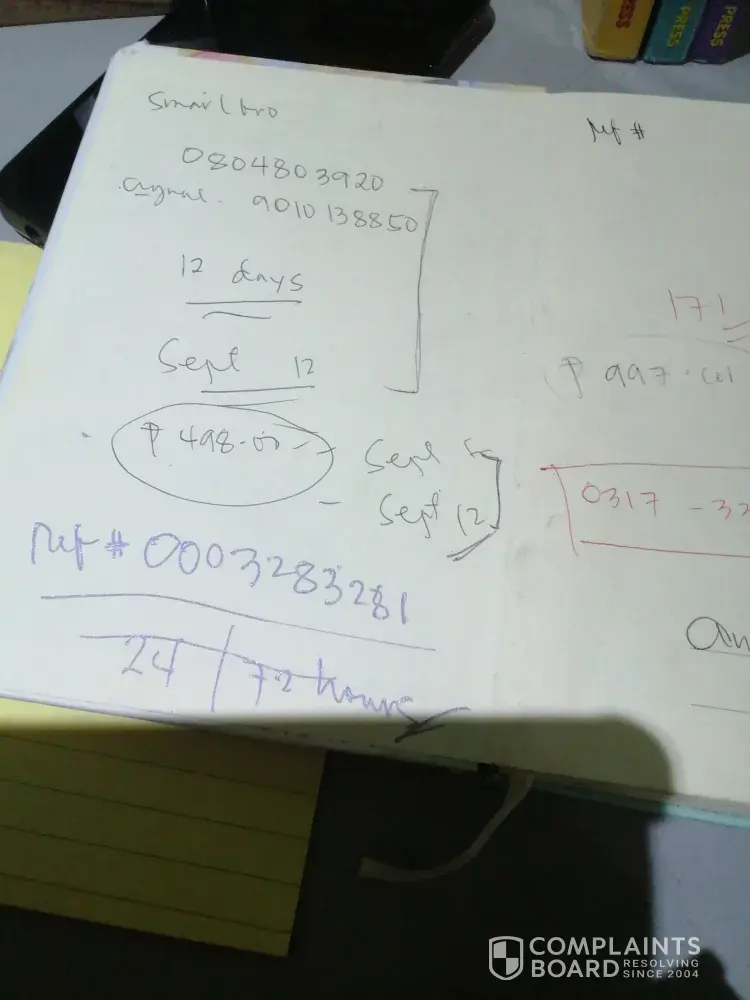 PRESS
PRESS
PRESS
Smart bro
0804803920
9010138850
12 days
Sept 12
₱ 498.00 - Sept
- Sept 12
ref # 0003283281
24 / 72 hours
ref #
171
₱ 997.
0317 - 33
an
COMPLAINTS
BOARD RESOLVING
SINCE 2004